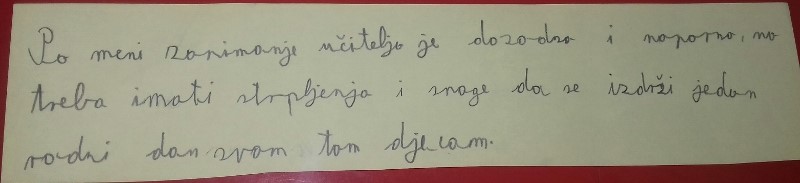 Po meni zanimanje učitelja je dozodno i naporno, no
treba imati strpljenja i snage da se izdrži jedan
radni dan svom tom djecom.